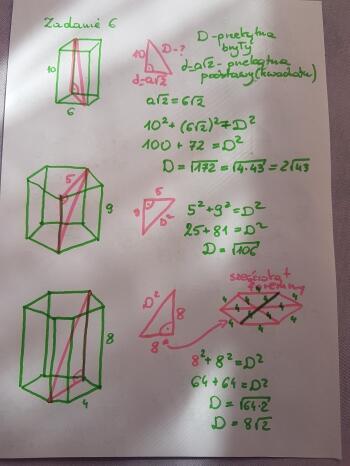 Zadanie 6
10
6
10
D-?
d=a√2
D-przekątna
bryły
d=a√2-przekątna
podstawy (kwadratu)
a√2=6√2
10²+(6√2)²=D²
100+72=D²
D=√172=√4·43=2√43
5
9
5
9
D²
5²+9²=D²
25+81=D²
D=√106
8
4
D²
8
8
sześciokąt
foremny
4 4 4 4 4 4 4 4
8²+8²=D²
64+64=D²
D=√64·2
D=8√2